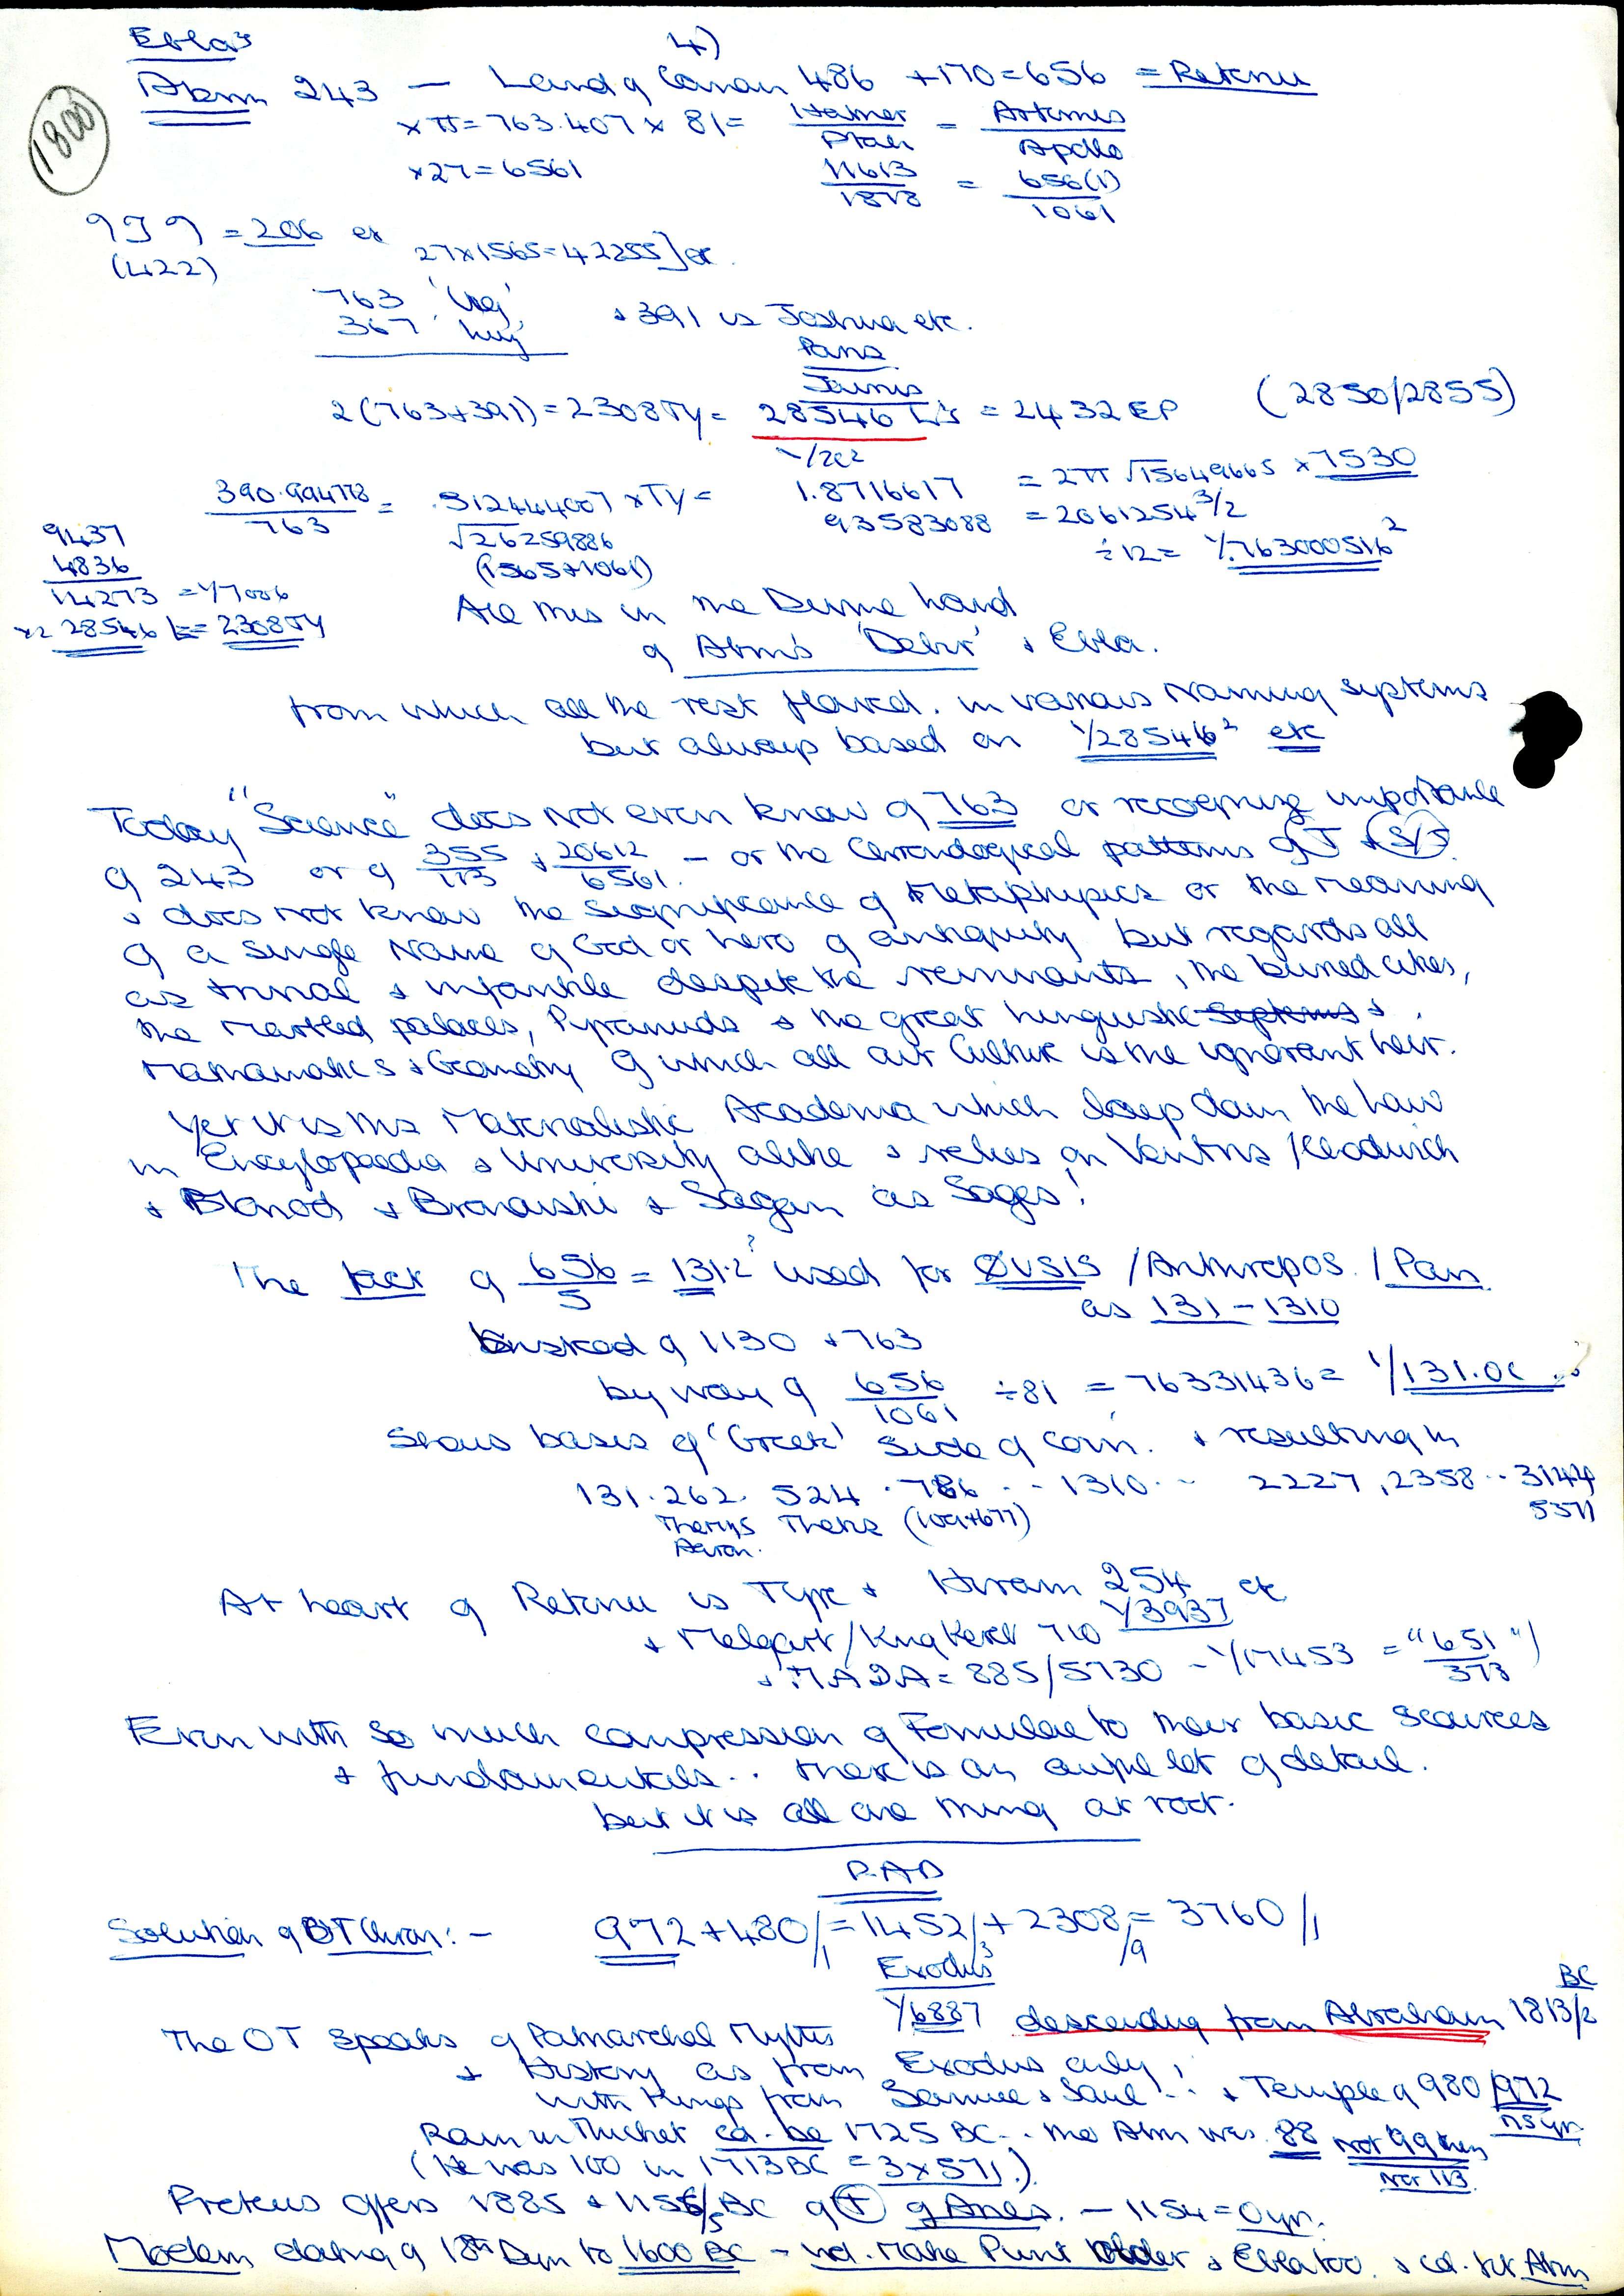 4)
Ebla's
1800
Abm 243 — Land of Canan 486 +170=656 = Retenu
×π=763.407 × 81= Hamer/Ptah = Artemis/Apollo
×27=6561 11613/1878 = 656(1)/1061
= 206 or 27×1565=42255] or
(422)
763
367 + 391 is Joshua etc.
Pans
Jainis
2(763+391)=2308TY= 28546 = 2432 EP (2850/2855)
390.994778/763 = .512444007 ×TY= 1.8716617 = 2π √15649665 ×7530
√26259886 93583088 = 2061254 3/2
(1565+1061) ÷12= 1/.763000516²
9437
4836
14273 = 1/7006
×2 28546 = 2308TY
All this in the Divine hand
of Abm's 'Debir' + Ebla.
from which all the rest flowed. in various Naming systems
but always based on 1/28546² etc
Today "Science" does not even know of 763 or recognize importance
of 243 or of 355/113 + 20612/6561 — or the Chronological patterns of J + S/S
+ does not know the significance of Metaphysics or the meaning
of a single Name of God or hero of antiquity but regards all
as trivial + infantile despite the remnants, the buried cities,
the Marbled palaces, Pyramids + the great linguistic systems +
Mathematics + Geometry of which all our Culture is the ignorant heir.
Yet it is this Materialistic Academia which lays down the law
in Encyclopaedia + University alike + relies on Ventris / Chadwick
+ + Bronowski + Sagan as Sages!
The fact of 656/5 = 131.2 ? used for ΦVSIS / Anthropos / Pan
as 131 — 1310
Instead of 1130 + 763
by way of 656/1061 ÷81 = 76331436 = 1/131.0
Shows basis of 'Greek' side of coin. + resulting in
131. 262. 524. 786 .. 1310 .. 2227, 2358 .. 3144
Themis Thetis (109+677) 5571
At heart of Retenu is Tyre + Hiram 254 etc
1/3937
+ Melqart / King Keret 710
= 885/5730 — 1/17453 = "651/373")
Even with so much compression of Formulae to their basic sources
+ fundamentals .. there is an awful lot of detail.
but it is all one thing at root.
RAD
Solution of OT Chron: — 972+480/1=1452/3+2308/9= 3760/1
Exodus
1/6887 descending from Abraham BC 1813/2
The OT speaks of Patriarchal Myths
+ History as from Exodus only,
with Kings from Samuel + Saul .. + Temple of 980/972
Ram in Thicket cd. be 1725 BC .. tho Abm was 88 not 99 then
not 113
(He was 100 in 1713 BC = 3×571.)
Proteus offers 1885 + BC of of Ares. — 1154=0yr.
Modern dating of 18th Dyn to 1600 BC — wd. make Punt older + Ebla too. + cd. put Abm